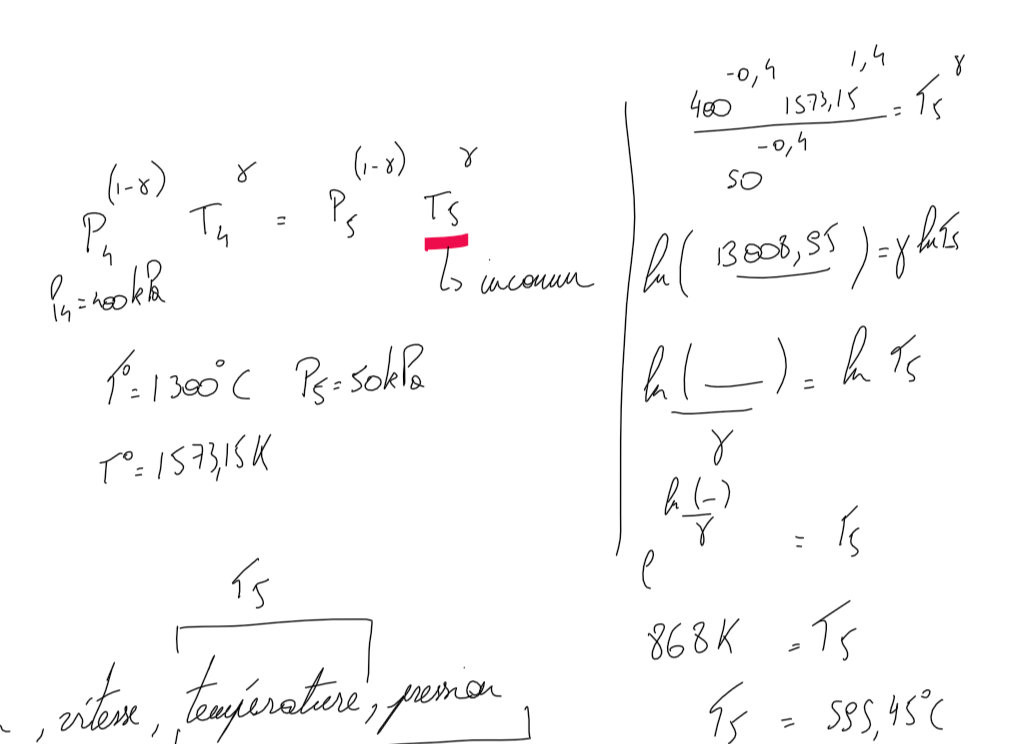 P₄^(1-γ) T₄^γ = P₅^(1-γ) T₅^γ
P₄ = 400kPa
↳ inconnu
T° = 1300°C P₅ = 50kPa
T° = 1573,15K
T₅
, vitesse, température, pression
400^-0,4 1573,15^1,4 / 50^-0,4 = T₅^γ
ln(13008,95) = γ ln T₅
ln(—)/γ = ln T₅
e^(ln(-)/γ) = T₅
868K = T₅
T₅ = 595,45°C